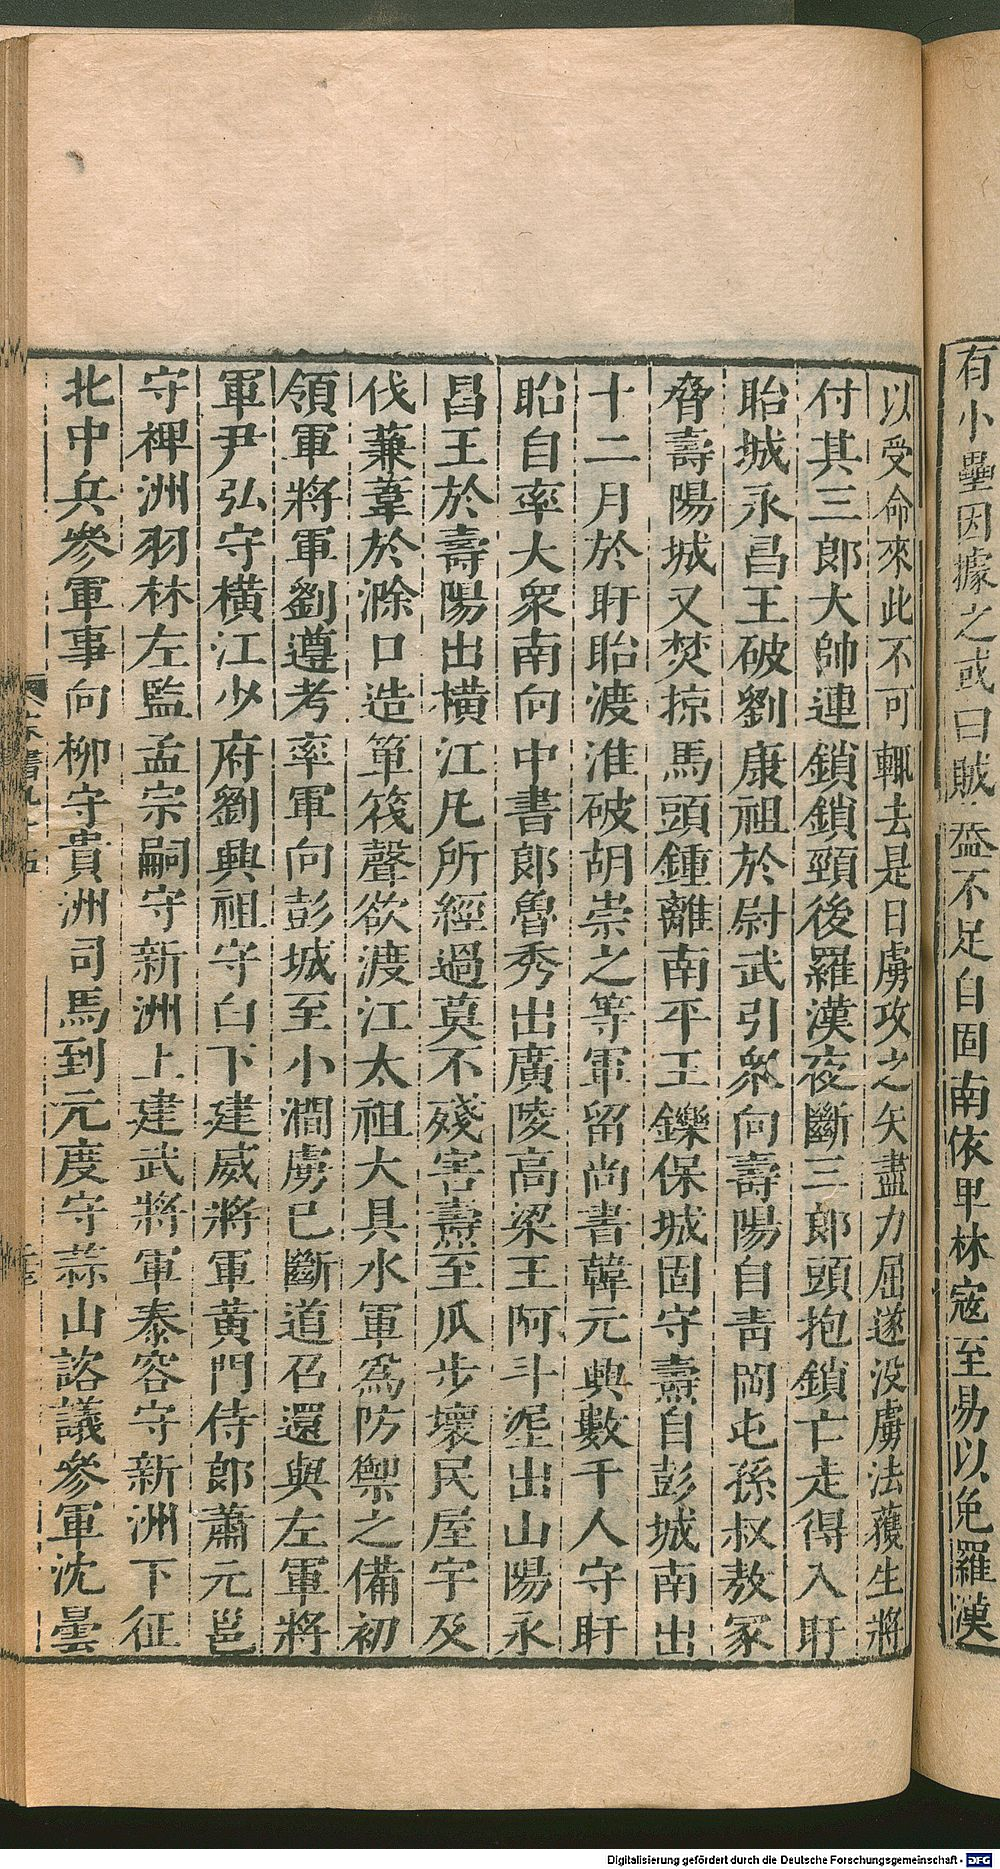 有小壘因據之或曰賊盛不足自固南依卑林寇至易以免羅漢
以受命來此不可輒去是日虜攻之矢盡力屈遂没虜法獲生將
付其三郎大帥連鎖鎖頸後羅漢夜斷三郎頭抱鎖亡走得入盱
眙城永昌王破劉康祖於尉武引衆向壽陽自青岡屯孫叔敖冢
脅壽陽城又焚掠馬頭鍾離南平王鑠保城固守燾自彭城南出
十二月於盱眙渡淮破胡崇之等軍留尚書韓元興數千人守盱
眙自率大衆南向中書郎魯秀出廣陵高梁王阿斗埿出山陽永
昌王於壽陽出橫江凡所經過莫不殘害燾至瓜步壞民屋宇及
伐蒹葦於滁口造箄筏聲欲渡江太祖大具水軍爲防禦之備初
領軍將軍劉遵考率軍向彭城至小澗虜已斷道召還與左軍將
軍尹弘守橫江少府劉興祖守白下建威將軍黄門侍郎蕭元邕
守裨洲羽林左監孟宗嗣守新洲上建武將軍泰容守新洲下征
北中兵參軍事向柳守貴洲司馬到元度守蒜山諮議參軍沈曇
Digitalisierung gefördert durch die Deutsche Forschungsgemeinschaft - DFG